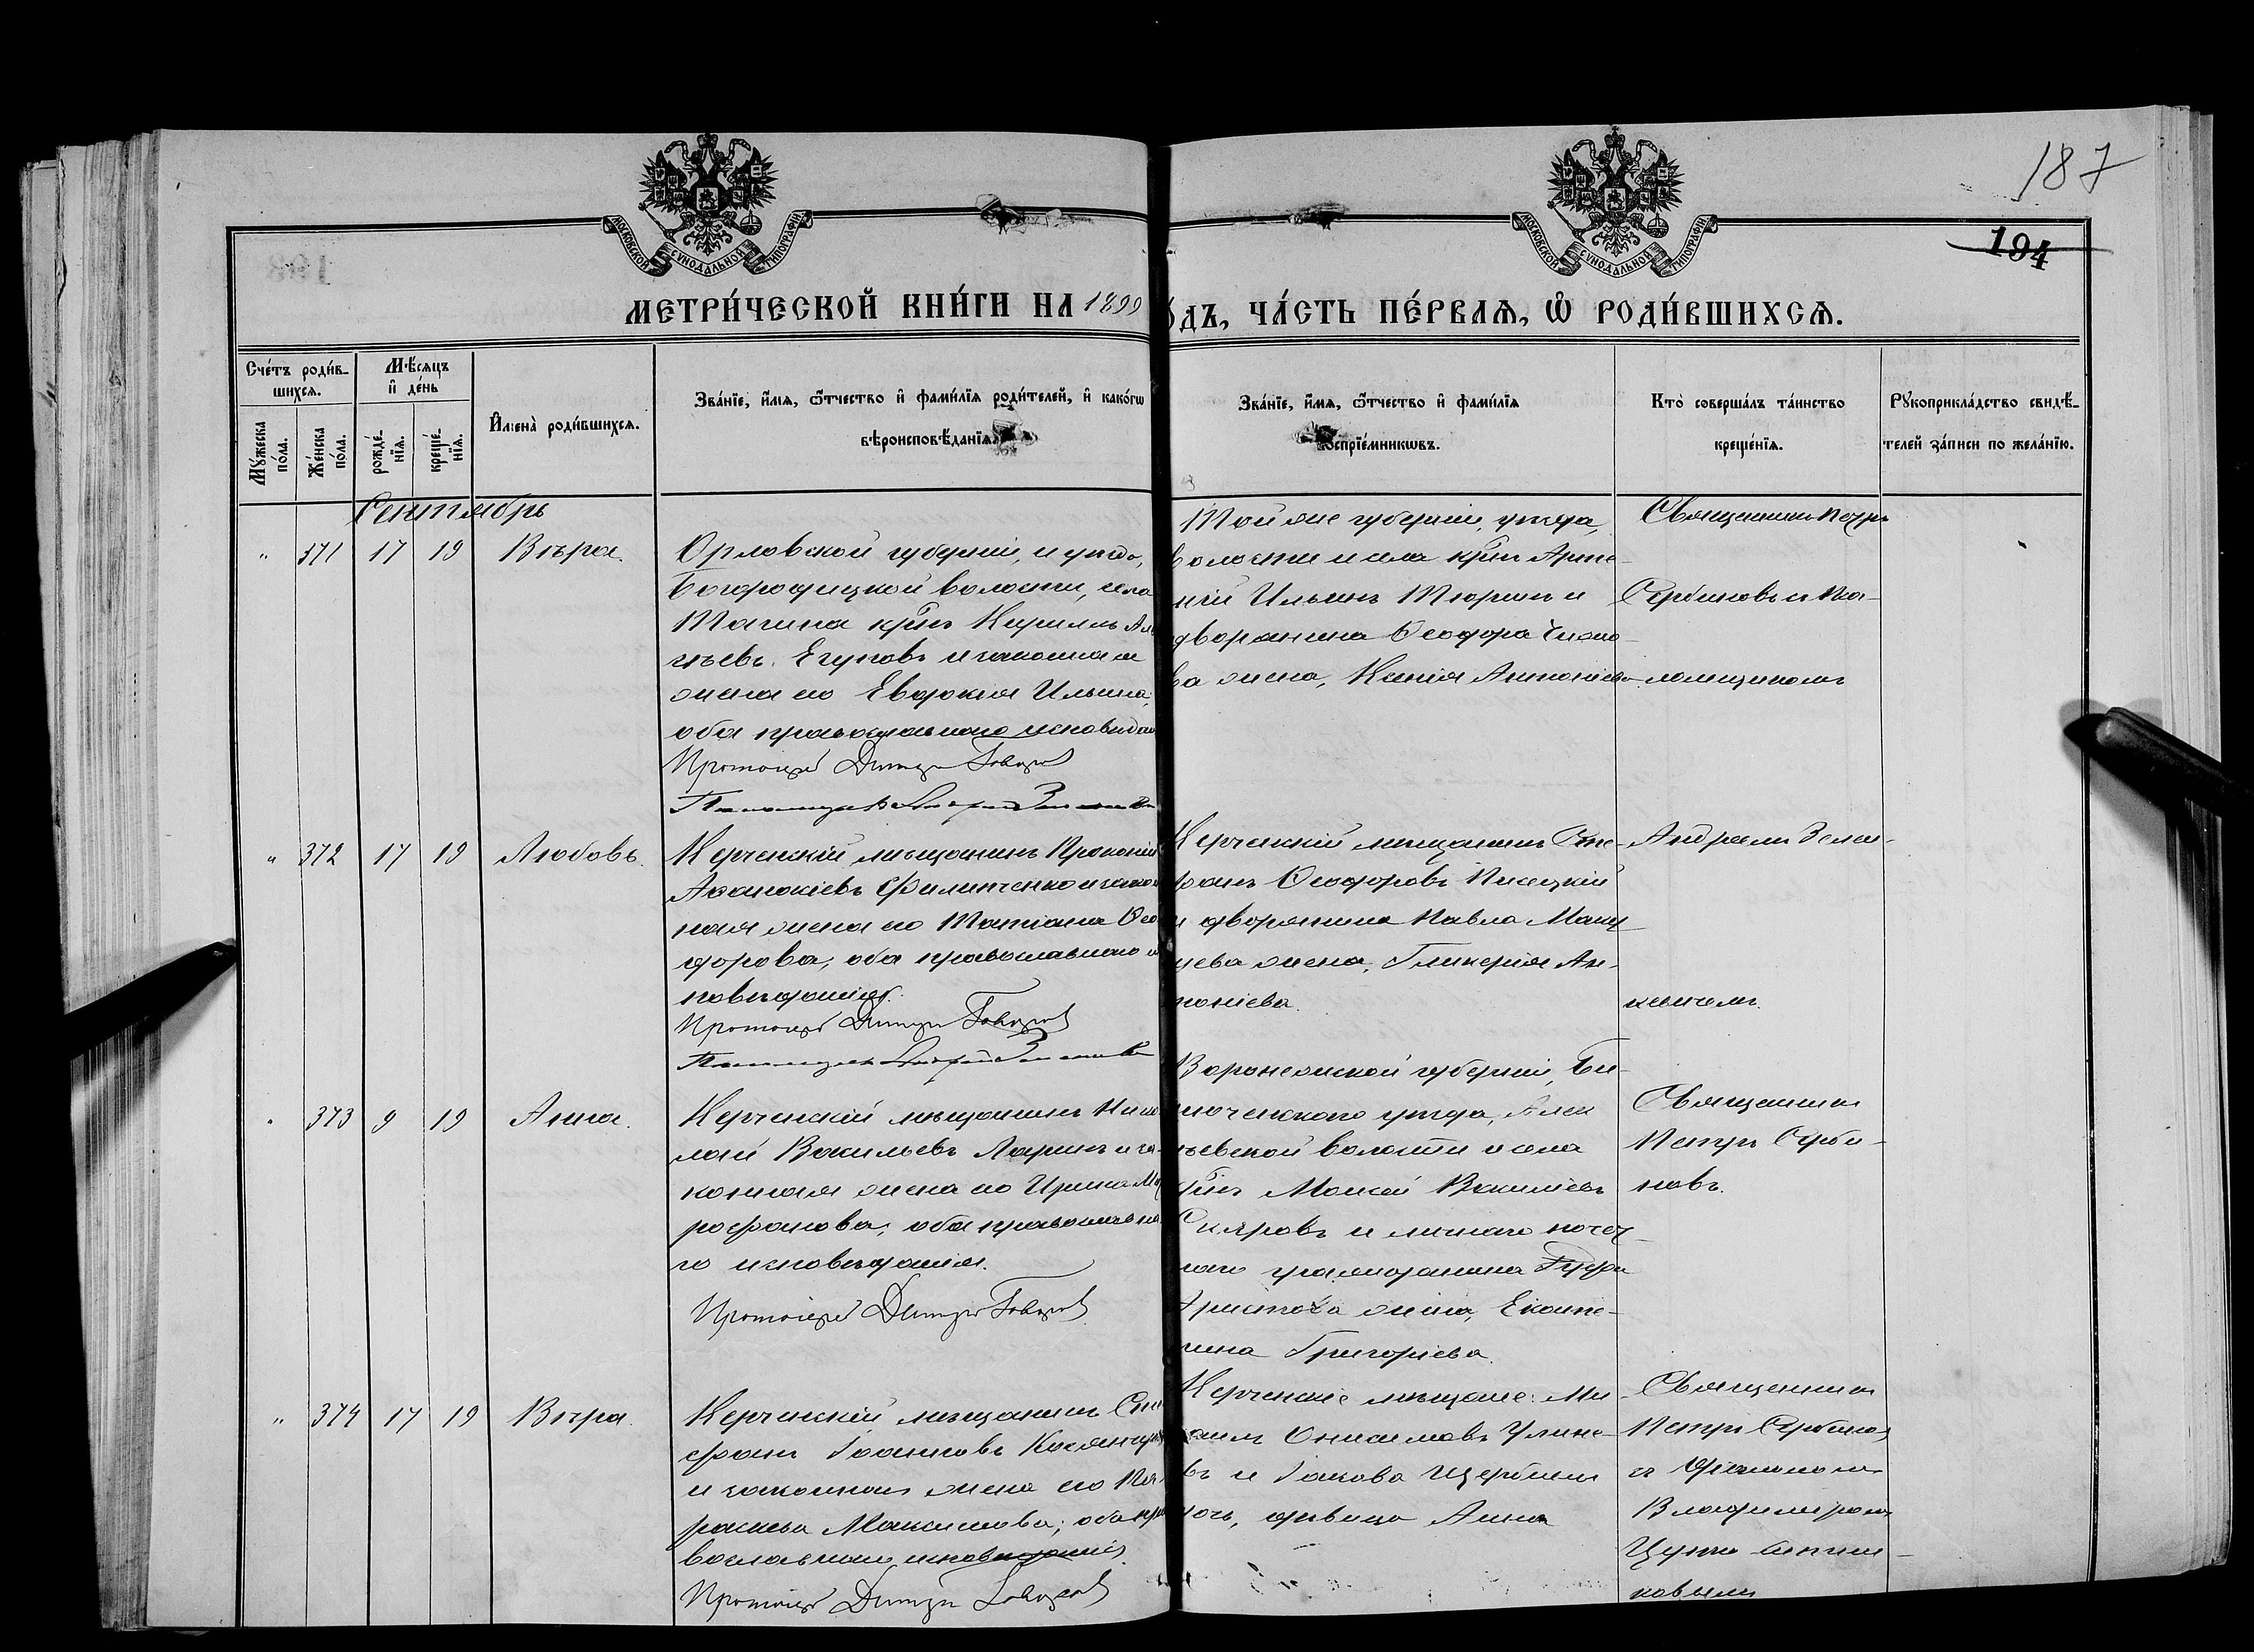 187
194
МОСКОВСКОЙ СѴНОДАЛЬНОЙ ТИПОГРАФІИ
МОСКОВСКОЙ СѴНОДАЛЬНОЙ ТИПОГРАФІИ
МЕТРИ́ЧЕСКОЙ КНИ́ГИ НА 1899
О́ДЪ, ЧА́СТЬ ПЕ́РВАѦ, Ѡ҆ РОДИ́ВШИХСѦ.
Сче́тъ роди́в-
шихсѧ.
Мꙋ́жеска по́ла.
Же́нска по́ла.
Мѣ́сяцъ
и҆ де́нь
рожде́-
нїѧ.
креще́-
нїѧ.
И҆мена̀ роди́вшихсѧ.
Зва́нїе, и҆́мѧ, ѻ҆́тчество и҆ фами́лїѧ роди́телей, и҆ како́гѡ
вѣроисповѣ́данїѧ
Зва́нїе, и҆́мѧ, ѻ҆́тчество и҆ фами́лїѧ
оспрїе́мникѡвъ.
Кто̀ соверша́лъ та́инство
креще́нїѧ.
Рꙋкоприкла́дство свидѣ́-
телей за́писи по жела́нїю.
Сентябрь
" 371 17 19 Вѣра.
Орловской губерніи, и уѣзда,
Богородицкой волости, села
Тагина кр-нъ Кириллъ
Егуповъ и законная
жена его Евдокія Ильина,
оба православнаго исповѣдан
Протоіерей Димитр
Той же губерніи, уѣзда,
волости и села кр-нъ Арте
мій Ильинъ Тюринъ и
дворянина Ѳеодора
ва жена, Ксенія Антоніева
Священникъ Петръ
Сербиновъ съ пса-
ломщикомъ
" 372 17 19 Любовь.
Керченскій мѣщанинъ Прокопій
Аѳанасіевъ Филипченко и закон
ная жена его Татіана Ѳео
дорова, оба православнаго ис
повѣданія.
Протоіерей Димитр
Керченскій мѣщанинъ Сте-
фанъ Ѳеодоровъ Писецкій
и дворянина Павла
цева жена, Гликерія Ан-
тоніева.
Андреемъ Зелен-
кевичемъ.
" 373 9 19 Анна.
Керченскій мѣщанинъ Нико
лай Васильевъ Ларинъ и за-
конная жена его Ирина Мит
рофанова, оба православна
го исповѣданія.
Протоіерей Димитр
Воронежской губерніи, Би-
рюченскаго уѣзда, Алек
сѣевской волости и села
кр-нъ Моисей Василіевъ
Скляровъ и личнаго почет
наго гражданина
Аристова жена, Екате-
рина Григоріева.
Священникъ
Петръ Серби-
новъ.
" 374 17 19 Вѣра.
Керченскій мѣщанинъ Сте
фанъ Іоанновъ
и законная жена его Па-
раскева Максимова; оба пра
вославнаго исповѣданія.
Протоіерей Димитр
Керченскіе мѣщане: Ми-
хаилъ Онисимовъ
въ и Іакова Щербины
дочь, дѣвица Анна
Священникъ
Петръ Сербиновъ
съ діакономъ
Владиміромъ